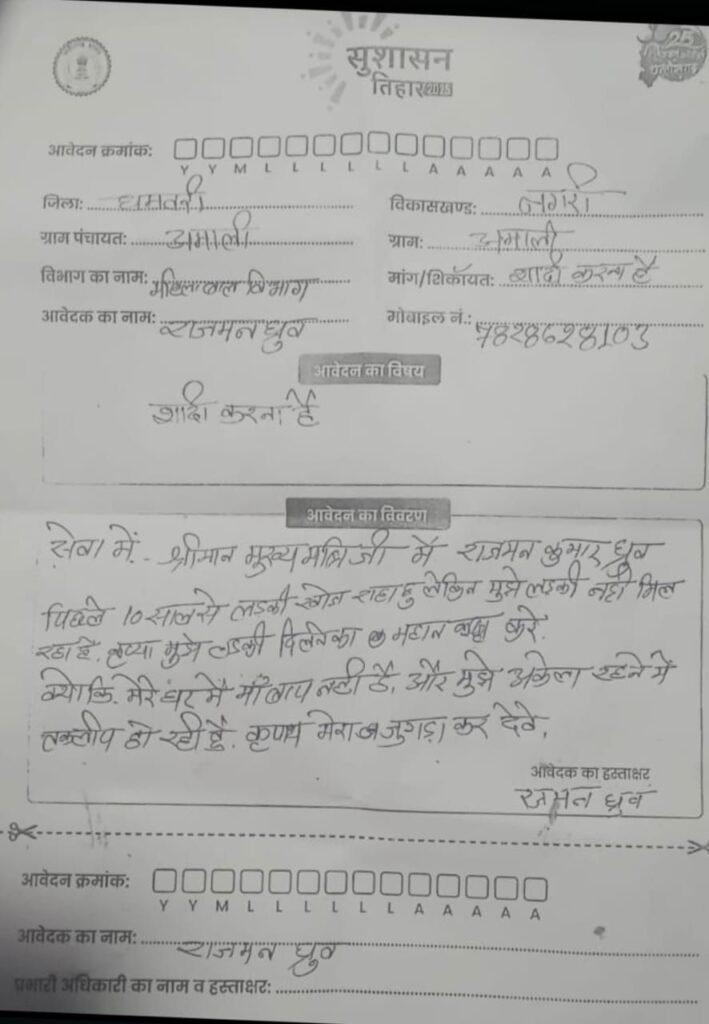 सुशासन
तिहार 2025
25
आवेदन क्रमांक:
Y Y M L L L L L L A A A A A
जिला: धमतरी
विकासखण्ड: नगरी
ग्राम पंचायत: अमाली
ग्राम: अमाली
विभाग का नाम: महिला बाल विभाग
मांग/शिकॉयत: शादी करना है
आवेदक का नाम: राजमन ध्रुव
मोबाइल नं.:
आवेदन का विषय
शादी करना है
आवेदन का विवरण
सेवा में - श्रीमान मुख्यमंत्रि जी में राजमन कुमार ध्रुव
पिछले 10 साल से लडकी खोज राहा हु लेकिन मुझे लडकी नही मिल
रहा है. कृप्या मुझे लडकी दिलने का महान करे.
क्योकि. मेरे घर मै माँ बाप नही है. और मुझे अकेला रहने मे
तकलीप हो रही है. मेरा जुगाड़ा कर देवे.
आवेदक का हस्ताक्षर
राजमन ध्रुव
आवेदन क्रमांक:
Y Y M L L L L L L A A A A A
आवेदक का नाम: राजमन ध्रुव
प्रभारी अधिकारी का नाम व हस्ताक्षर: